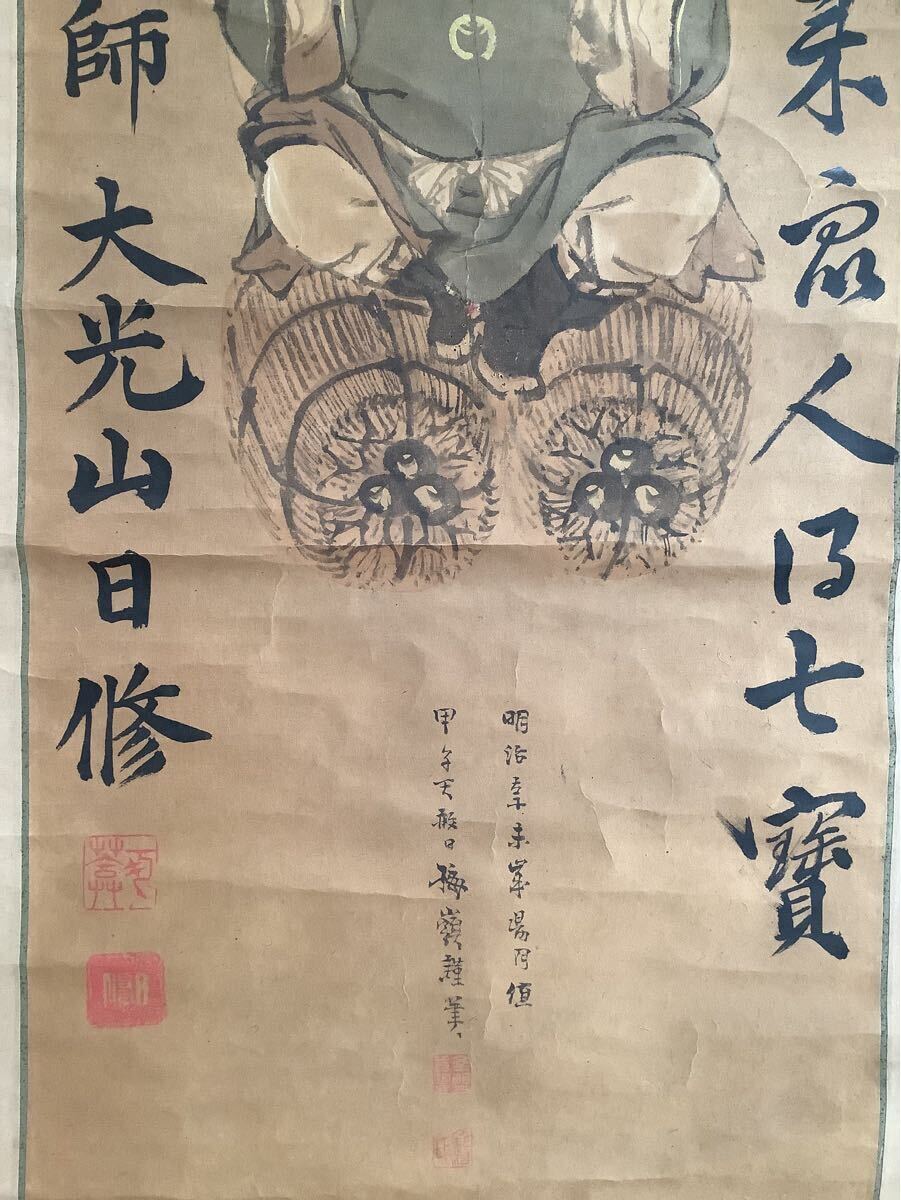 来衆人得七寶
明治辛未歳陽月値
甲子天赦日梅嶺謹筆
師 大光山日修